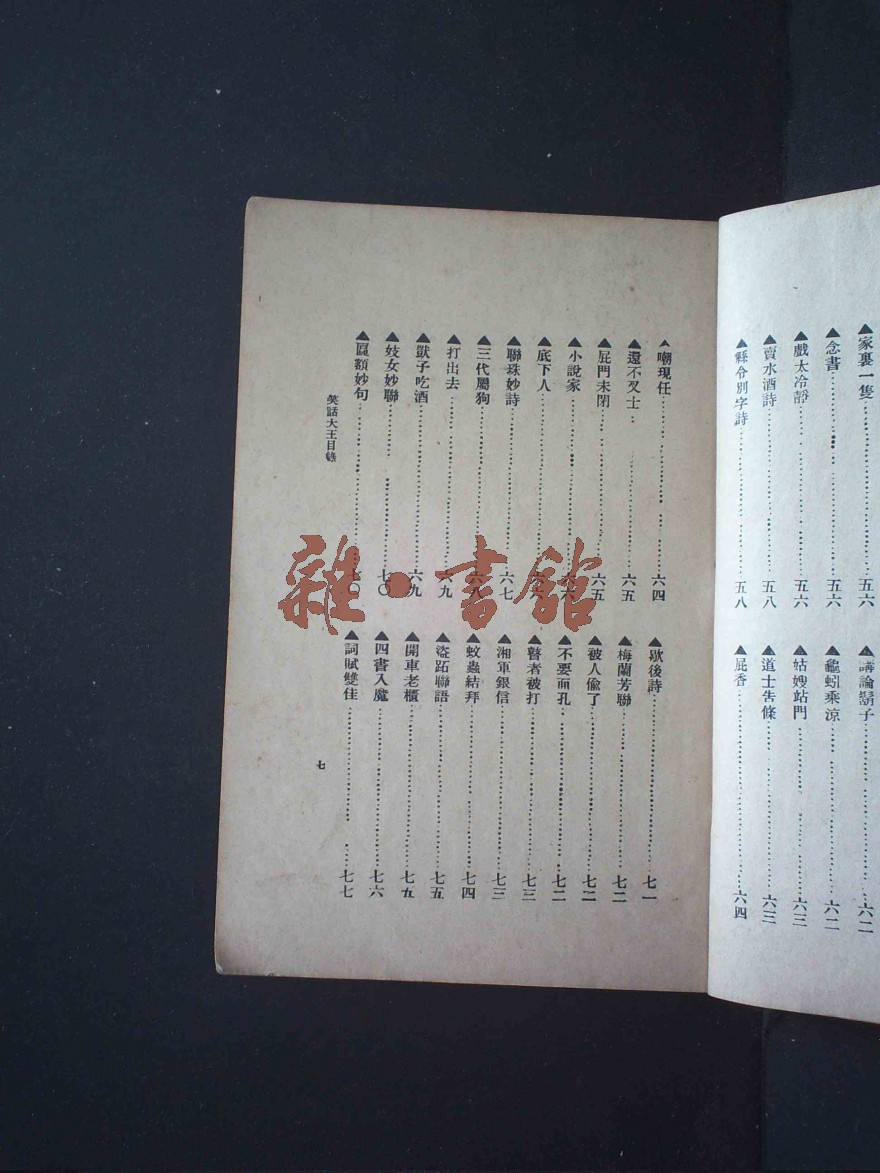 ▲家裏一隻……五六
▲念書……五六
▲戲太冷靜……五六
▲賣水酒詩……五八
▲縣令別字詩……五八
▲講論鬍子……六二
▲龜蚓乘涼……六二
▲姑嫂站門……六三
▲道士告條……六三
▲屁香……六四
▲嘲現任……六四
▲還不叉士……六五
▲屁門未閉……六五
▲小說家……六六
▲底下人……六六
▲聯珠妙詩……六七
▲三代屬狗……六八
▲打出去……六九
▲獃子吃酒……六九
▲妓女妙聯……七〇
▲匾額妙句……七〇
▲歇後詩……七一
▲梅蘭芳聯……七二
▲被人偸了……七二
▲不要面孔……七二
▲瞽者被打……七三
▲湘軍銀信……七三
▲蚊蟲結拜……七四
▲盜跖聯語……七五
▲開車老櫃……七五
▲四書入魔……七六
▲詞賦雙佳……七七
笑話大王目錄
七
雜·書館